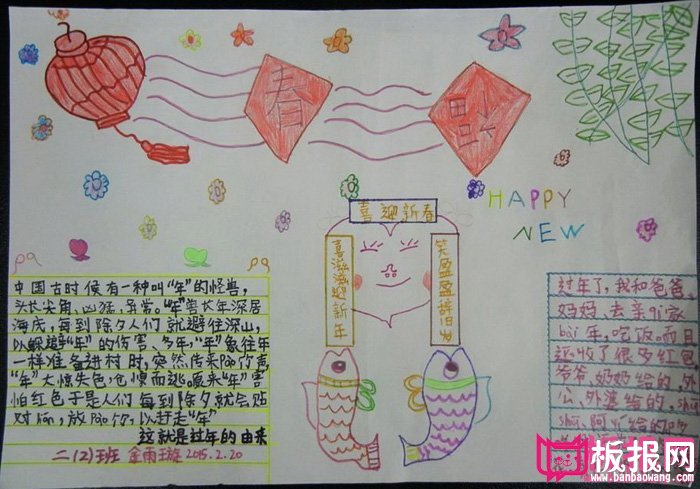 春
福
HAPPY
NEW
喜迎新春
喜滋滋迎新年
笑盈盈辞旧岁
中国古时候有一种叫“年”的怪兽,
头长尖角、凶猛异常。“年”兽长年深居
海底,每到除夕人们就避往深山,
以躲避“年”的伤害、多年,“年”象往年
一样准备进村时,突然传来pào竹声
“年”大惊失色,仓惶而逃。原来“年”害
怕红色于是人们每到除夕就会贴
对lián,放pào竹,以赶走“年”
这就是过年的由来
二(2)班 金雨璇 2015.2.20
过年了,我和爸爸、
妈妈、去亲戚家
bài年,吃饭。而且
还收了很多红包
爷爷、奶奶给的,
公、外婆给的,
阿
板报网
www.banbaowang.com